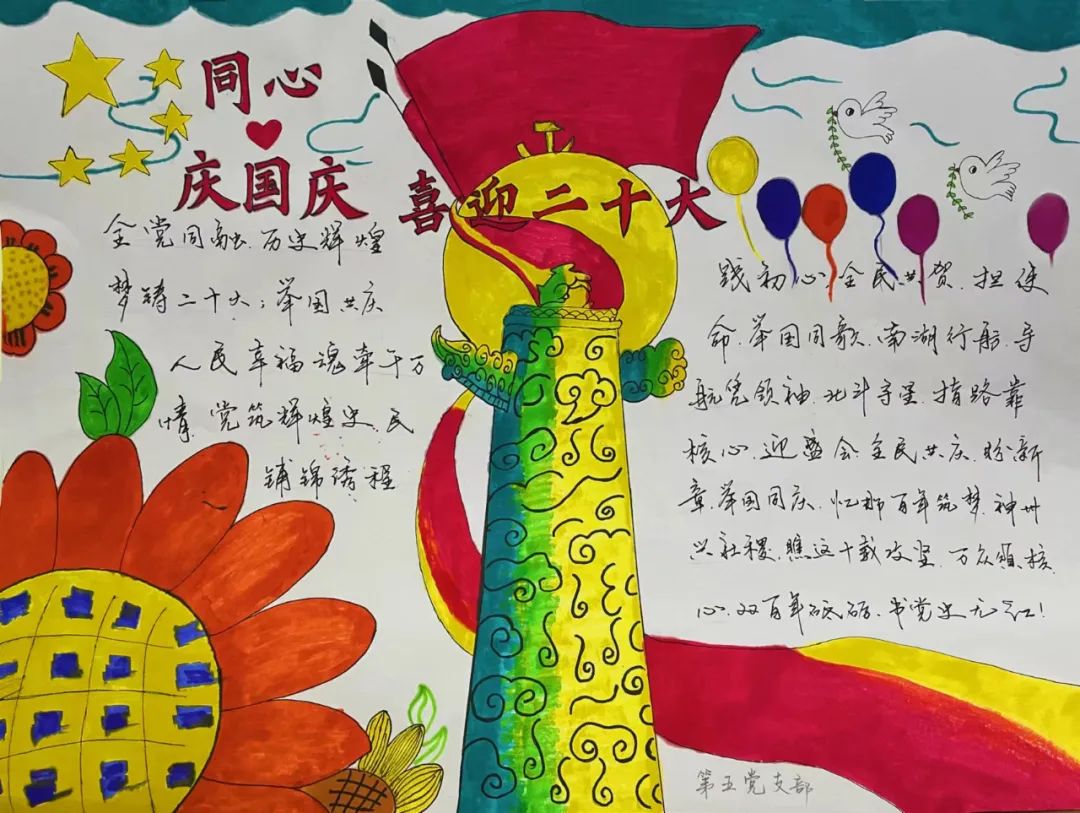 同心
庆国庆 喜迎二十大
全党同融.历史辉煌
梦铸二十大;举国共庆
人民幸福魂牵千万
情.党筑辉煌史.民
铺锦绣程
践初心.全民共贺.担使
命.举国同歌.南湖行船.导
航凭领袖.北斗导星.指路靠
核心.迎盛会.全民共庆.盼新
章.举国同庆.忆那百年筑梦.神州
兴社稷.瞧这十载攻坚.万众 核
心.双百年砥砺.书党史无 !
第五党支部